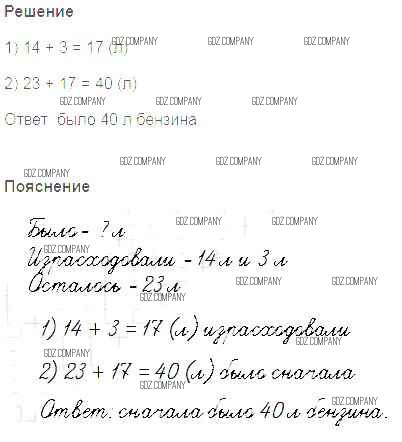 Решение
1) 14 + 3 = 17 (л)
GDZ.COMPANY GDZ.COMPANY GDZ.COMPANY
2) 23 + 17 = 40 (л)
GDZ.COMPANY GDZ.COMPANY GDZ.COMPANY
Ответ было 40 л бензина
GDZ.COMPANY GDZ.COMPANY GDZ.COMPANY
GDZ.COMPANY
Пояснение
Было - ? л
GDZ.COMPANY GDZ.COMPANY
GDZ.COMPANY
Израсходовали - 14 л и 3 л
Осталось - 23 л
GDZ.COMPANY GDZ.COMPANY
GDZ.COMPANY
1) 14 + 3 = 17 (л) израсходовали
GDZ.COMPANY GDZ.COMPANY
GDZ.COMPANY
2) 23 + 17 = 40 (л) было сначала
GDZ.COMPANY
GDZ.COMPANY
Ответ: сначала было 40 л бензина.
GDZ.COMPANY